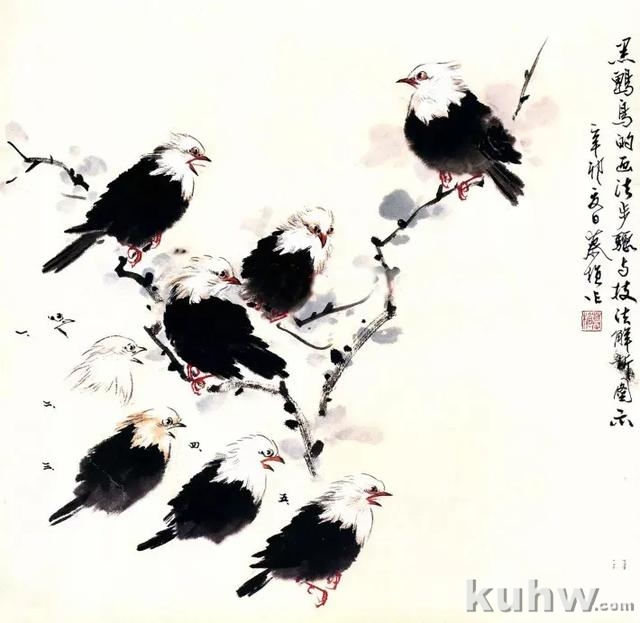 黑鹎鸟的画法步骤与技法解析图示
辛卯夏日蔡植作
一、
二、
三、
四、
五、
kuhw.com